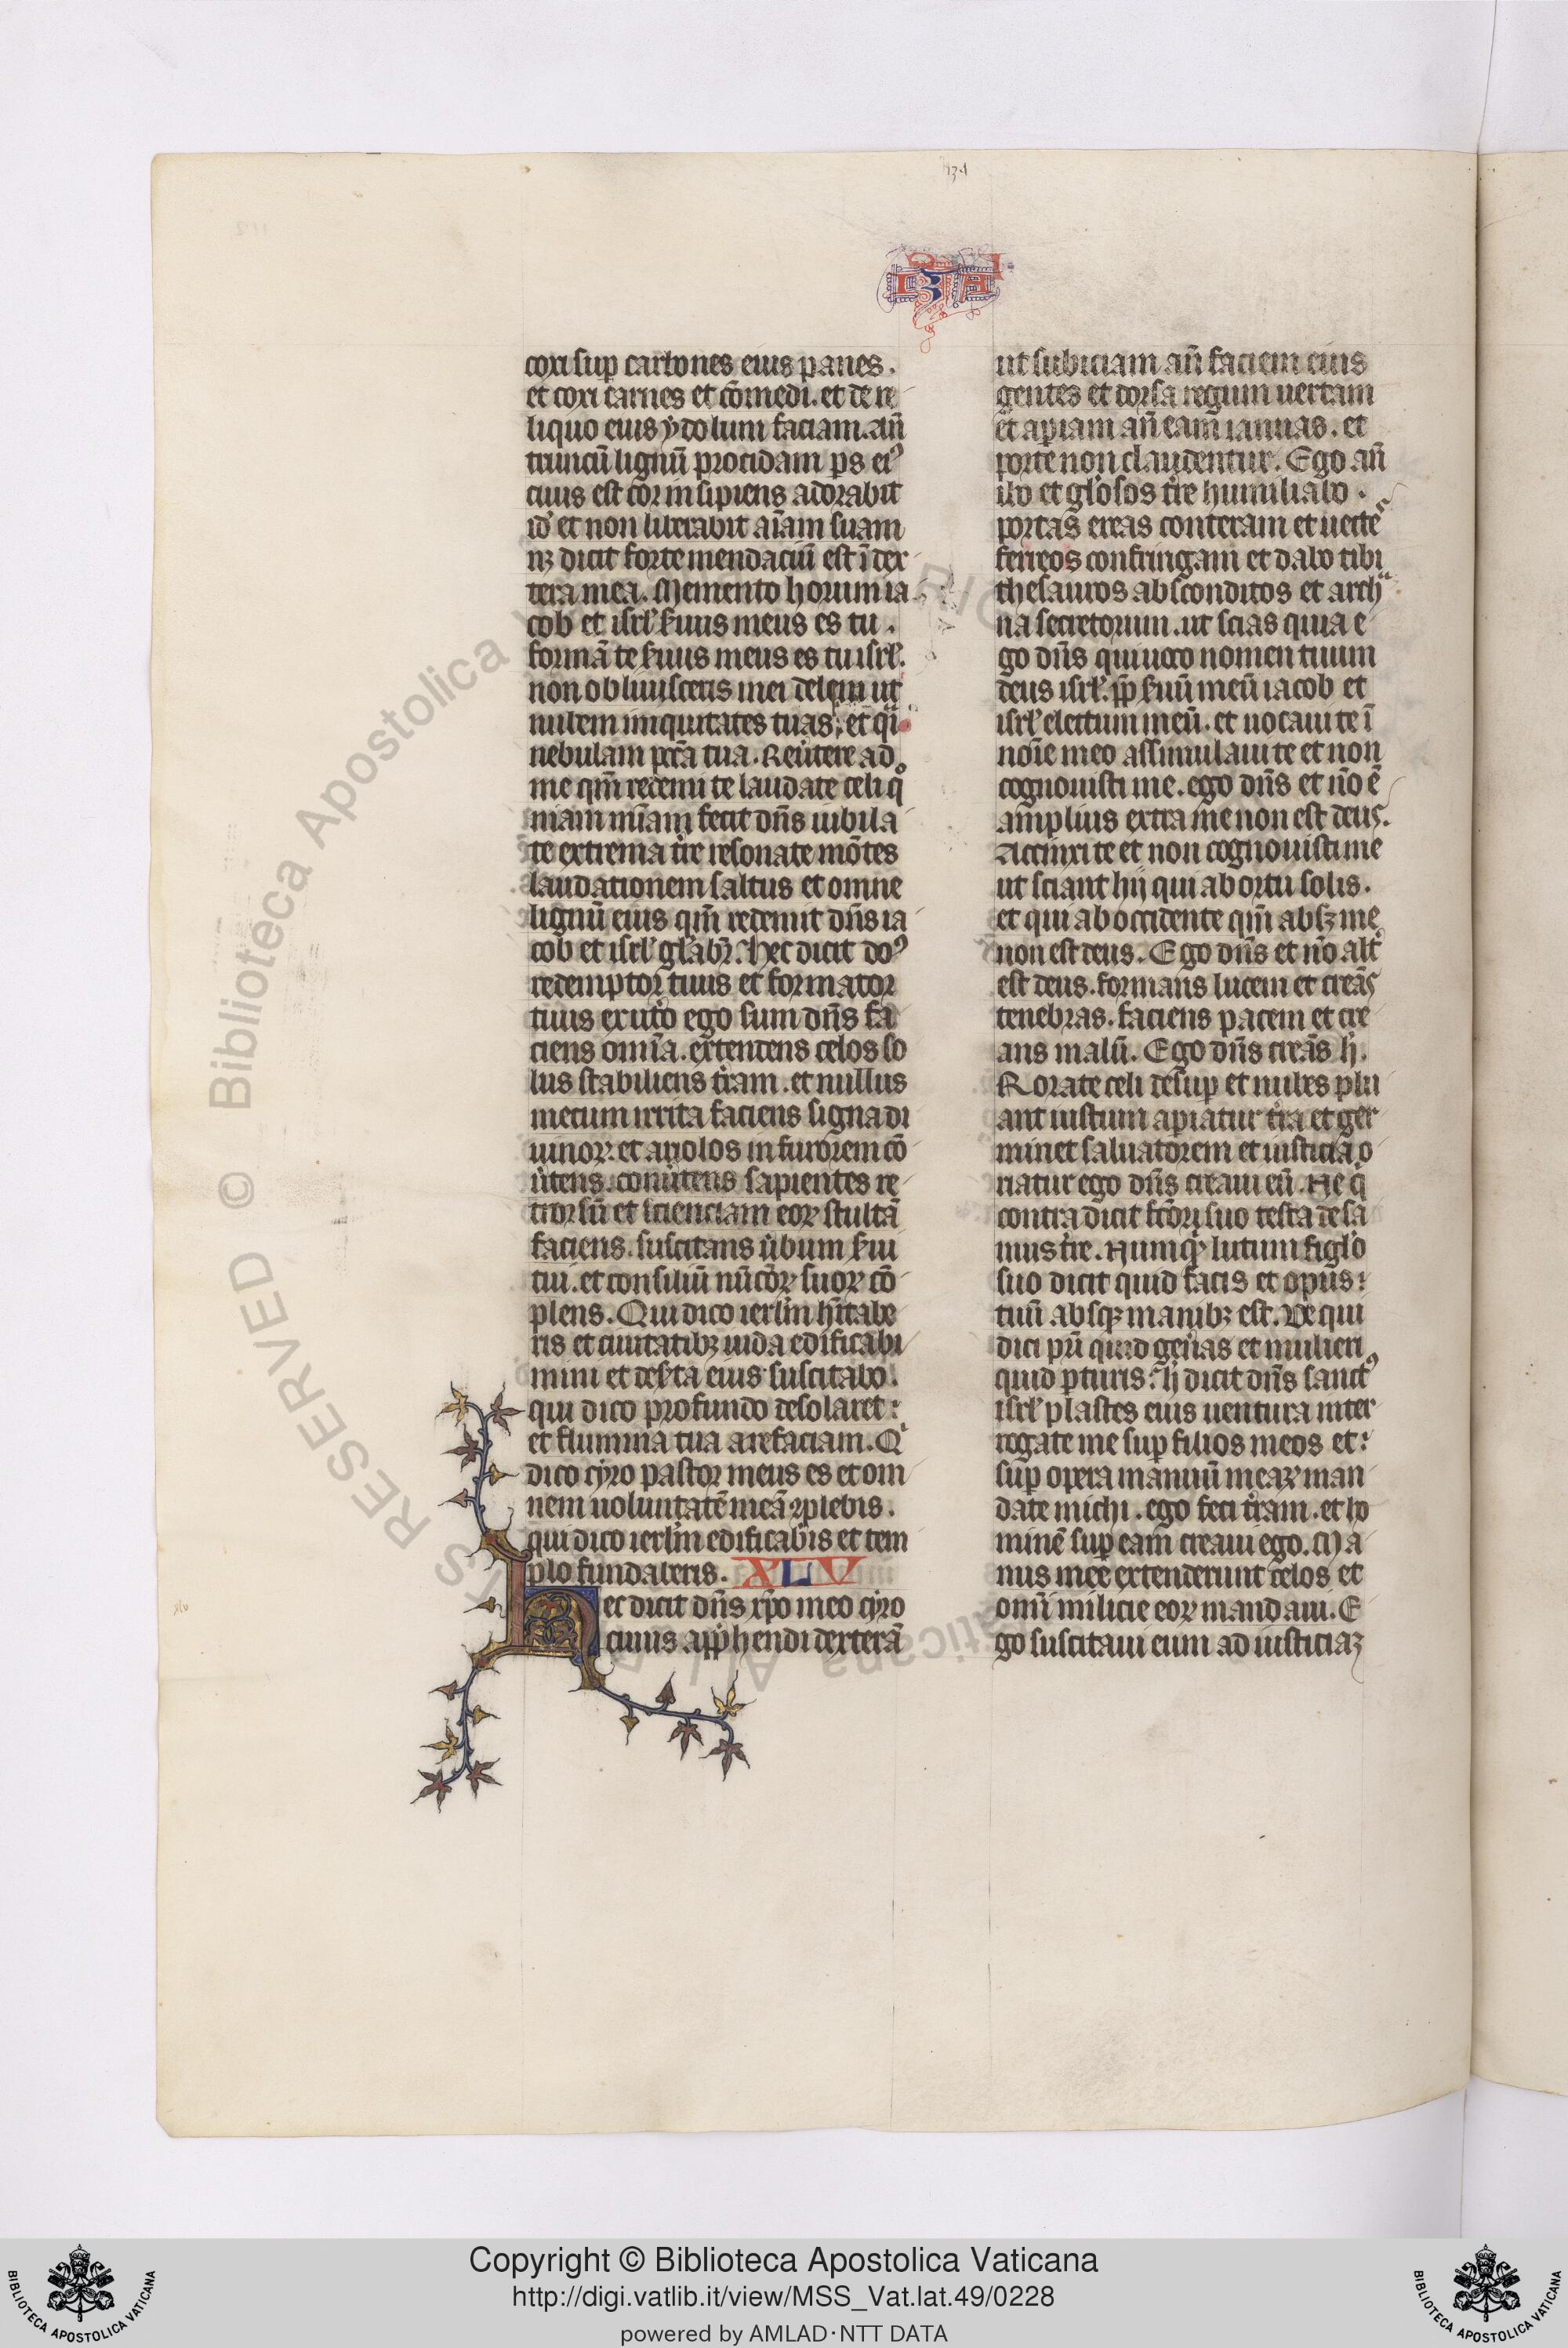 YSA
coxi sup̱ carbones eius panes.
et coxi carnes et cōmedi. et de re
liquo eius ydolum faciam. an̄
truncū lignū procidam ps eiꝰ
cuius est cor insipiens adorabit
id' et non liberabit aīam suam
nꝫ dicit forte mendaciū est ī dex
tera mea. Memento horum ia
cob et isrł seruus meus es tu.
formā te seruus meus es tu isrł.
non obliuisceris mei deleui ut
nubem iniquitates tuas. et qͥ
nebulam pccā tua. Reutere ad
me qm̄ redemi te laudate celi qͦ
niam mīam fecit dn̄s iubila
te extrema tr̄e resonate mōtes
laudationem saltus et omne
lignū eius qm̄ redemit dn̄s ia
cob et isrł glabr̄. hec dicit doꝰ
redemptor tuus et formator
tuus ex utō ego sum dn̄s fa
ciens omīa. extentens celos so
lus stabiliens tr̄am. et nullus
mecum irrita faciens signa di
uinoꝝ. et ariolos in furorem cō
ūtens. conūtens sapientes re
trorsū et scienciam eoꝝ stultā
faciens. suscitans ūbum serui
tui. et consiliū nūcioꝝ suoꝝ cō
plens. Qui dico ierłm hītabe
ris et ciuitatibꝫ iuda edificabi
mini et deserta eius suscitabo.
qui dico profundo desolaret:
et flumina tua arefaciam. Qͥ
dico cyro pastor meus es et om
nem uoluntatē meā ꝯplebis.
qui dico ierłm edificabis et tem
plo fundaberis. XLV
Hec dicit dn̄s xp̄o meo cyro
cuius app̄hendi dexterā
ut subiciam an̄ faciem eius
gentes et dorsa regum uertam
et apiam an̄ eam ianuas. et
porte non claudentur. Ego an̄
ibo et gl'osos tr̄e humiliabo.
portas ereas conteram et uectes
ferreos confringam et dabo tibi
thesauros absconditos et arch
na secretorum. ut scias quia e
go dn̄s qui uoco nomen tuum
deus isrł. ꝓp̄ seruū meū iacob et
isrł electum meū. et uocaui te ī
noīe meo assimulaui te et non
cognouisti me. ego dn̄s et n̄o ē
amplius extra me non est deus.
Accinxi te et non cognouisti me
ut sciant hij qui ab ortu solis.
et qui ab occidente qm̄ absqꝫ me
non est deus. Ego dn̄s et n̄o alt̄
est deus. formans lucem et creās
tenebras. faciens pacem et cre
ans malū. Ego dn̄s creās h̄.
Rorate celi desup̱ et nubes plu
ant iustum apiatur tr̄a et ger
minet saluatorem et iusticia o
riatur ego dn̄s creaui eū. Ue qͥ
contradicit fctōri suo testa de sa
mus tr̄e. Numqͥd lutum figl'o
suo dicit quid facis et opus:
tuū absqꝫ manibꝫ est. Ve qui
dici pr̄i quid gen̄as et mulieri
quid pturis: h̄ dicit dn̄s sanctꝰ
isrł plastes eius uentura inter
rogate me sup̱ filios meos et:
sup̱ opera manuū meaꝝ man
date michi. ego feci tr̄am. et ho
minē sup̱ eam creaui ego. Ma
nus mee extenderunt celos et
omū milicie eoꝝ mandaui. E
go suscitaui eum ad iusticiaꝫ
© Biblioteca Apostolica Vaticana ALL RIGHTS RESERVED
Copyright © Biblioteca Apostolica Vaticana
http://digi.vatlib.it/view/MSS_Vat.lat.49/0228
powered by AMLAD·NTT DATA
BIBLIOTECA APOSTOLICA VATICANA
BIBLIOTECA APOSTOLICA VATICANA